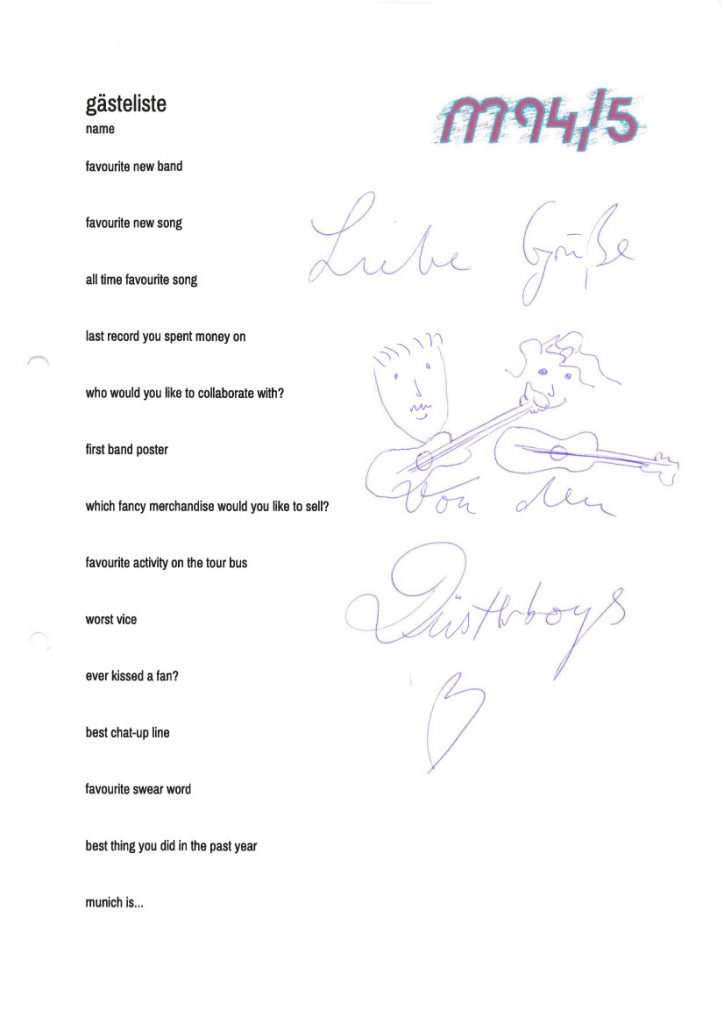 gästeliste
m94/5
name
favourite new band
favourite new song
Liebe Grüße
all time favourite song
last record you spent money on
who would you like to collaborate with?
first band poster
which fancy merchandise would you like to sell?
Von den
favourite activity on the tour bus
worst vice
Düsterboys
ever kissed a fan?
best chat-up line
favourite swear word
best thing you did in the past year
munich is...